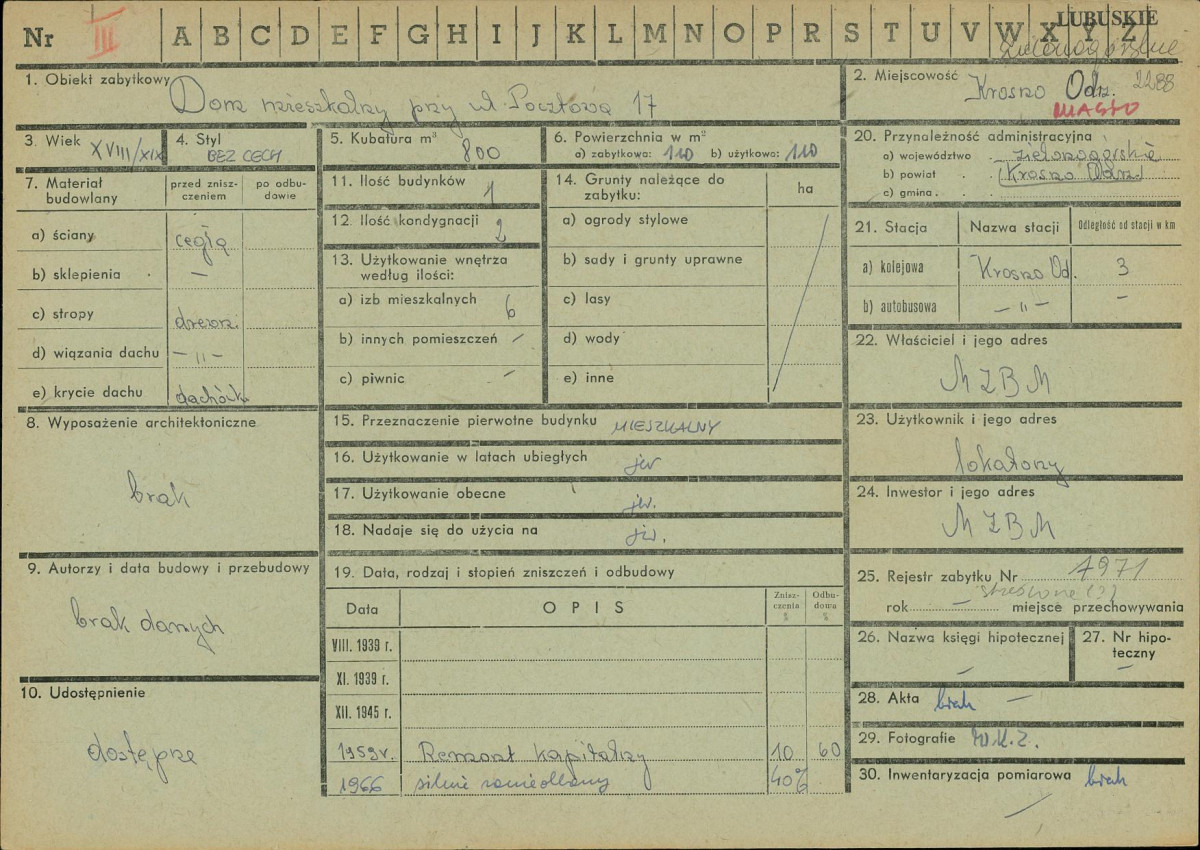 Nr III A B C D E F G H I J K L M N O P R S T U V W X Y Z LUBUSKIE
1. Obiekt zabytkowy Dom mieszkalny przy ul. Pocztowa 17
2. Miejscowość Krosno Odrz. 2288
MIASTO
3. Wiek XVIII/XIX
4. Styl BEZ CECH
5. Kubatura m³ 800
6. Powierzchnia w m²
a) zabytkowa: 110 b) użytkowa: 110
20. Przynależność administracyjna
a) województwo . zielonogórskie
b) powiat . . Krosno Odrz.
c) gmina . .
7. Materiał budowlany
przed znisz-
czeniem
po odbu-
dowie
a) ściany cegła
b) sklepienia . —
c) stropy drewn.
d) wiązania dachu — " —
e) krycie dachu dachówk
11. Ilość budynków 1
12. Ilość kondygnacji 2
13. Użytkowanie wnętrza
według ilości:
a) izb mieszkalnych 6
b) innych pomieszczeń —
c) piwnic —
14. Grunty należące do
zabytku:
ha
a) ogrody stylowe
b) sady i grunty uprawne
c) lasy
d) wody
e) inne
21. Stacja Nazwa stacji Odległość od stacji w km
a) kolejowa Krosno Od. 3
b) autobusowa — " — —
22. Właściciel i jego adres
MZBM
8. Wyposażenie architektoniczne
brak
15. Przeznaczenie pierwotne budynku MIESZKALNY
16. Użytkowanie w latach ubiegłych jw
17. Użytkowanie obecne jw.
18. Nadaje się do użycia na jw.
23. Użytkownik i jego adres
lokatorzy
24. Inwestor i jego adres
MZBM
9. Autorzy i data budowy i przebudowy
brak danych
10. Udostępnienie
dostępne
19. Data, rodzaj i stopień zniszczeń i odbudowy
Data OPIS
Znisz-
czenia
%
Odbu-
dowa
%
VIII. 1939 r.
XI. 1939 r.
XII. 1945 r.
1959r. Remont kapitalny 10 60
1966 silnie zaniedbany 40%
25. Rejestr zabytku Nr 1971
rok — miejsce przechowywania
26. Nazwa księgi hipotecznej
—
27. Nr hipo-
teczny
—
28. Akta brak —
29. Fotografie W.K.Z.
30. Inwentaryzacja pomiarowa brak
—